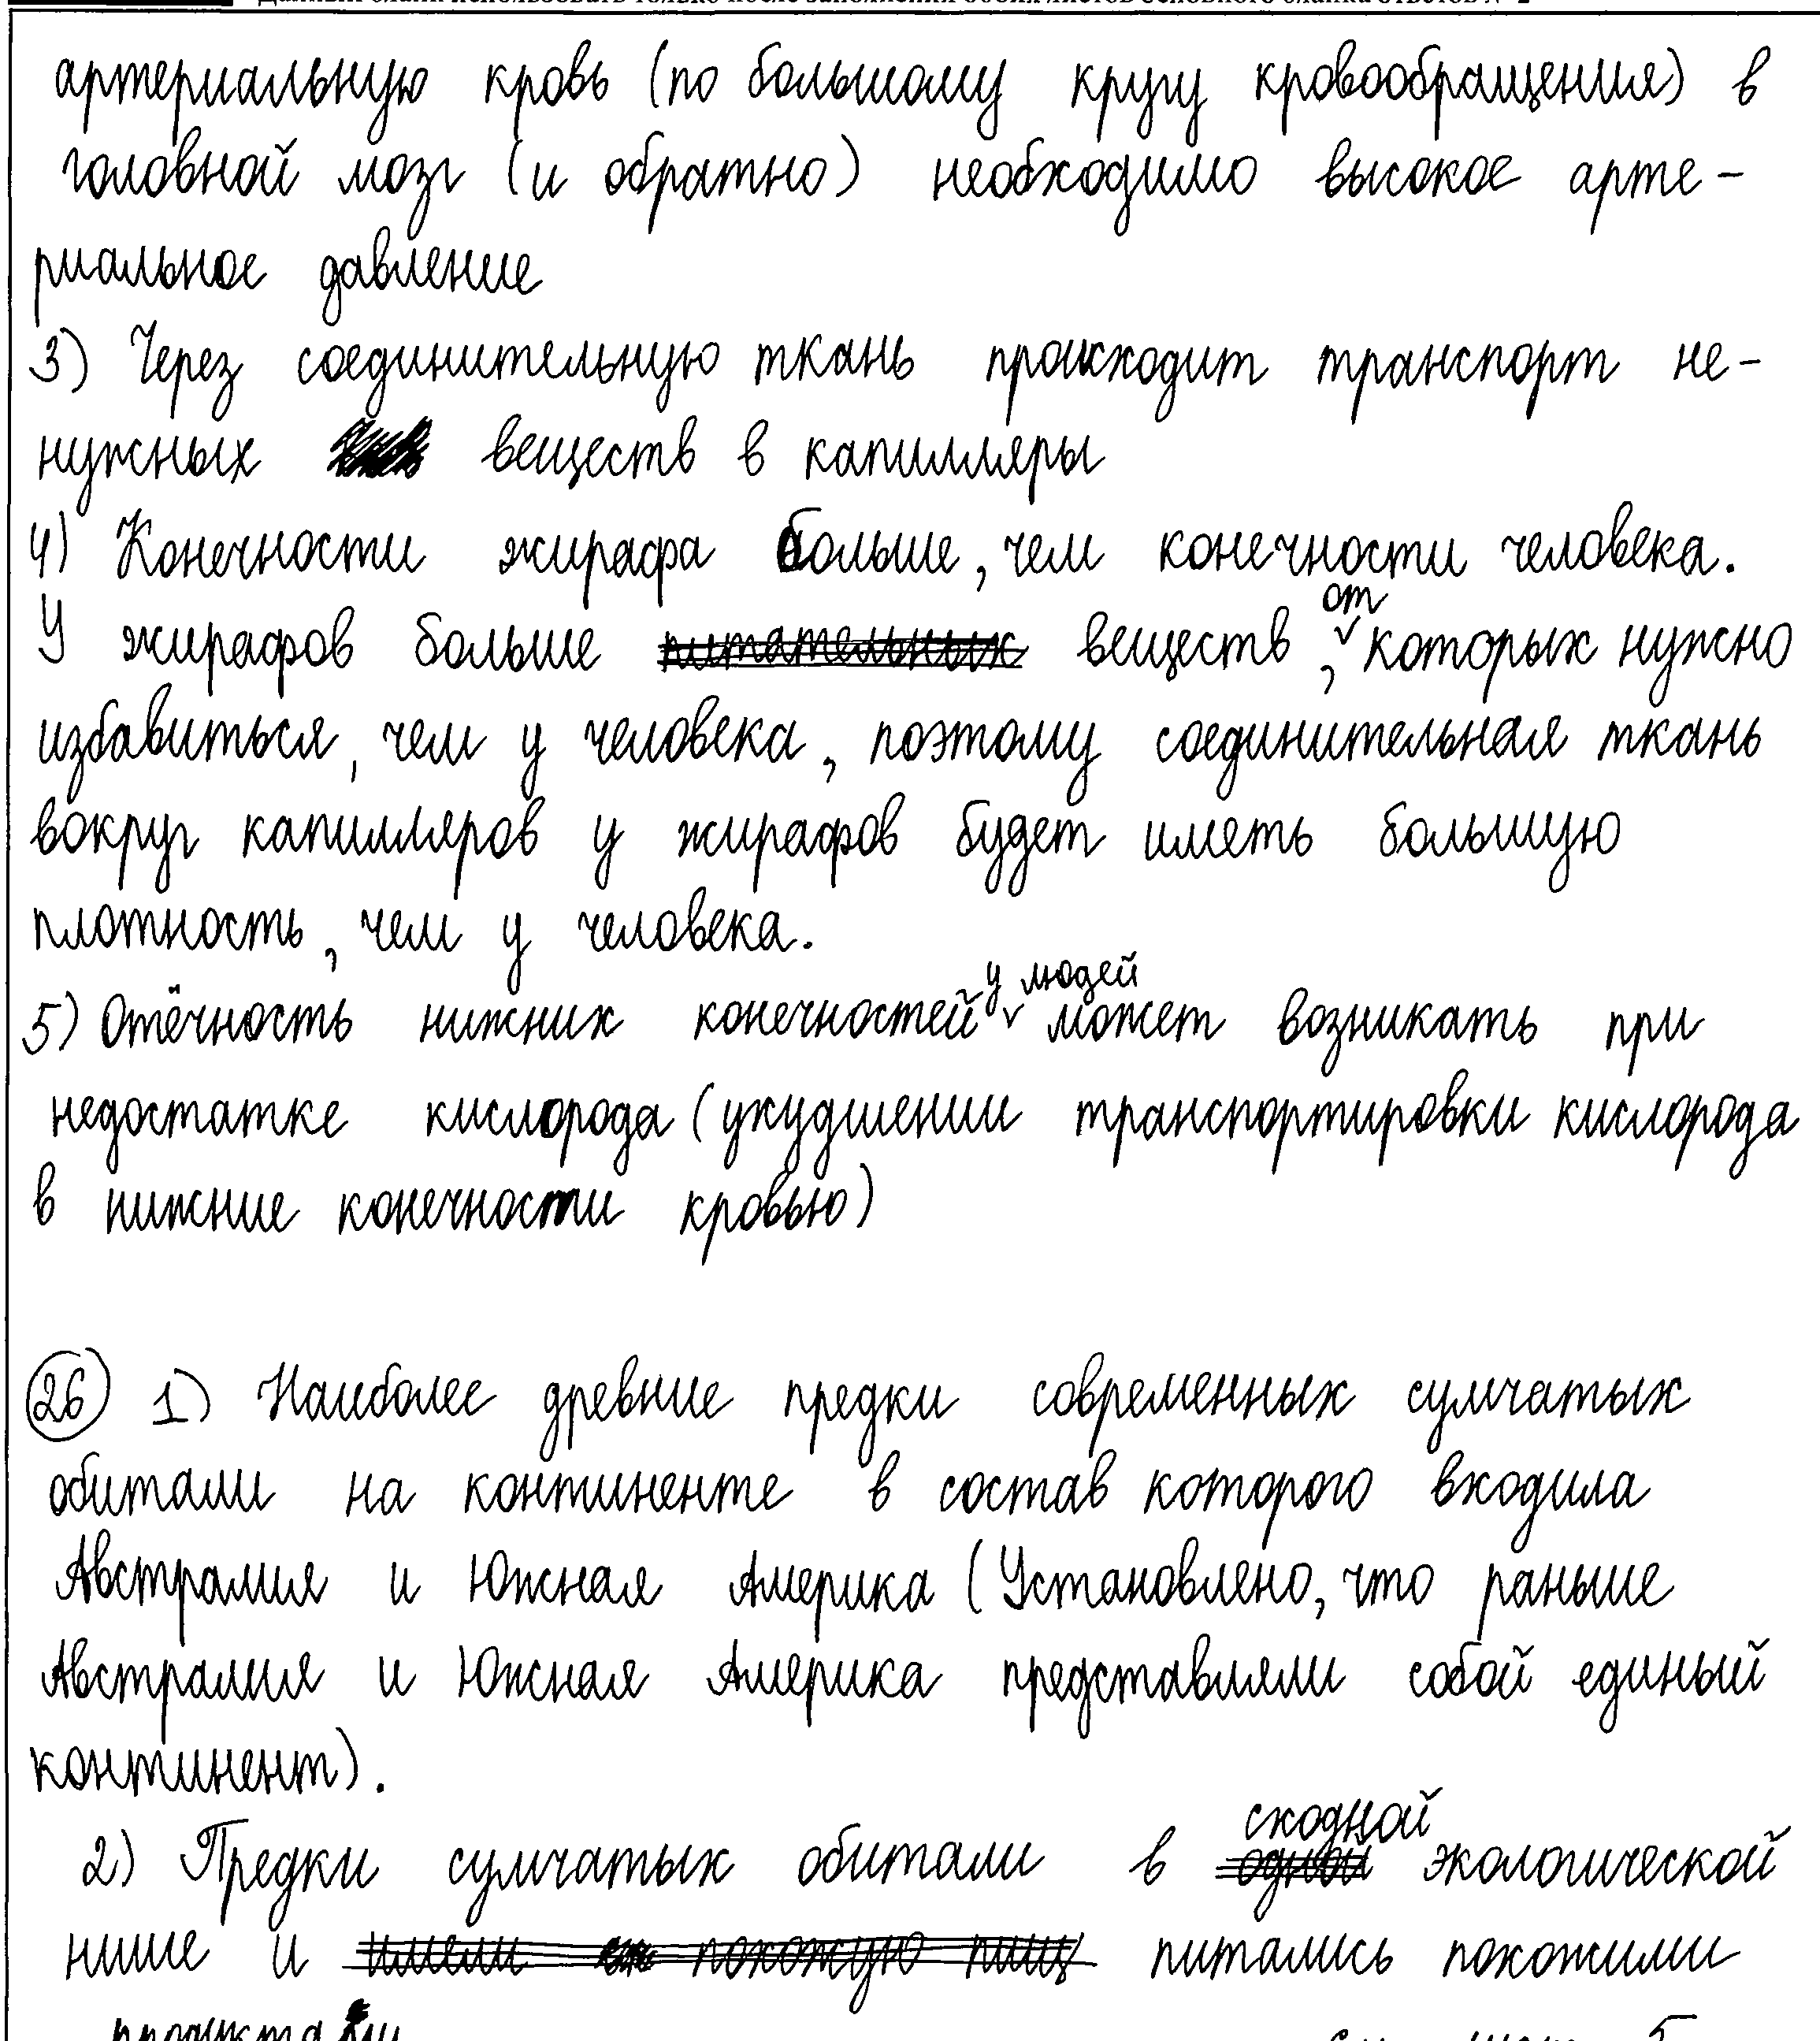 Данный бланк использовать только после заполнения обоих листов основного бланка ответов № 2
артериальную кровь (по большому кругу кровообращения) в
головной мозг (и обратно) необходимо высокое арте-
риальное давление
3) Через соединительную ткань происходит транспорт не-
нужных веществ в капилляры
4) Конечности жирафа больше, чем конечности человека.
У жирафов больше питательных веществ, от которых нужно
избавиться, чем у человека, поэтому соединительная ткань
вокруг капилляров у жирафов будет иметь большую
плотность, чем у человека.
5) Отёчность нижних конечностей у людей может возникать при
недостатке кислорода (ухудшении транспортировки кислорода
в нижние конечности кровью)
26 1) Наиболее древние предки современных сумчатых
обитали на континенте в состав которого входила
Австралия и Южная Америка (Установлено, что раньше
Австралия и Южная Америка представляли собой единый
континент).
2) Предки сумчатых обитали в одной сходной экологической
нише и имели похожую пищ питались похожими
продуктами